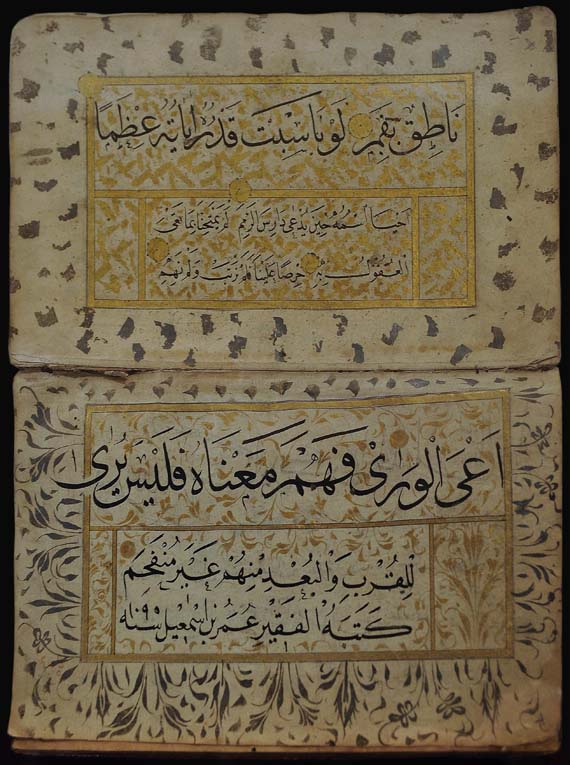 نَاطِقٍ بِفَمِ لَوْ نَاسَبَتْ قَدْرَهُ اٰيَاتُهُ عِظَمًا
اَحْيَا اسْمُهُ حِينَ يُدْعٰى دَارِسَ الرِّمَمِ لَمْ يَمْتَحِنَّا بِمَا تَعْيَى
الْعُقُولُ بِهِ حِرْصًا عَلَيْنَا فَلَمْ نَرْتَبْ وَلَمْ نَهِمِ
اَعْيَى الْوَرٰى فَهْمُ مَعْنَاهُ فَلَيْسَ يُرٰى
لِلْقُرْبِ وَالْبُعْدِ مِنْهُمْ غَيْرُ مُنْفَحِمِ
كَتَبَهُ الْفَقِيرِ عُمَرْ بْنِ اِسْمٰعِيل سنه